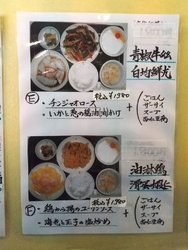 青椒牛絲
E
税込¥1,980
・チンジャオロース
・いかと葱の醤油炒め
+
ごはん
ザーサイ
スープ
杏仁豆腐
油淋鶏
F
税込¥1,980
・鶏から揚のユーリンソース
・海老と玉子の塩炒め
+
ごはん
ザーサイ
スープ
杏仁豆腐